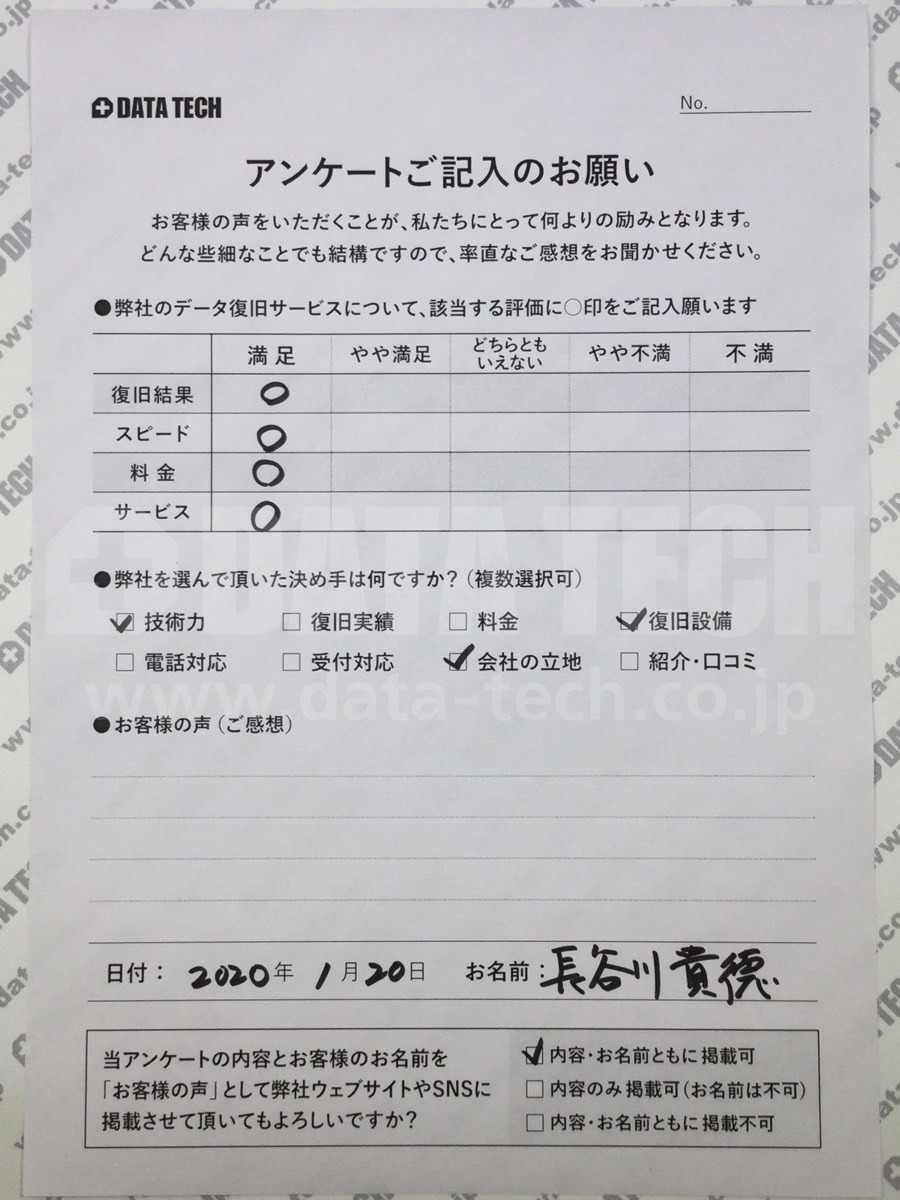 DATA TECH
No.
アンケートご記入のお願い
お客様の声をいただくことが、私たちにとって何よりの励みとなります。
どんな些細なことでも結構ですので、率直なご感想をお聞かせください。
●弊社のデータ復旧サービスについて、該当する評価に○印をご記入願います
満足 やや満足 どちらとも いえない やや不満 不満
復旧結果 ○
スピード ○
料金 ○
サービス ○
●弊社を選んで頂いた決め手は何ですか?(複数選択可)
☑ 技術力 □ 復旧実績 □ 料金 ☑ 復旧設備
□ 電話対応 □ 受付対応 ☑ 会社の立地 □ 紹介・口コミ
DATA TECH
www.data-tech.co.jp
●お客様の声(ご感想)
日付: 2020年 1月20日 お名前:長谷川貴徳
当アンケートの内容とお客様のお名前を
「お客様の声」として弊社ウェブサイトやSNSに
掲載させて頂いてもよろしいですか?
☑ 内容・お名前ともに掲載可
□ 内容のみ掲載可(お名前は不可)
□ 内容・お名前ともに掲載不可